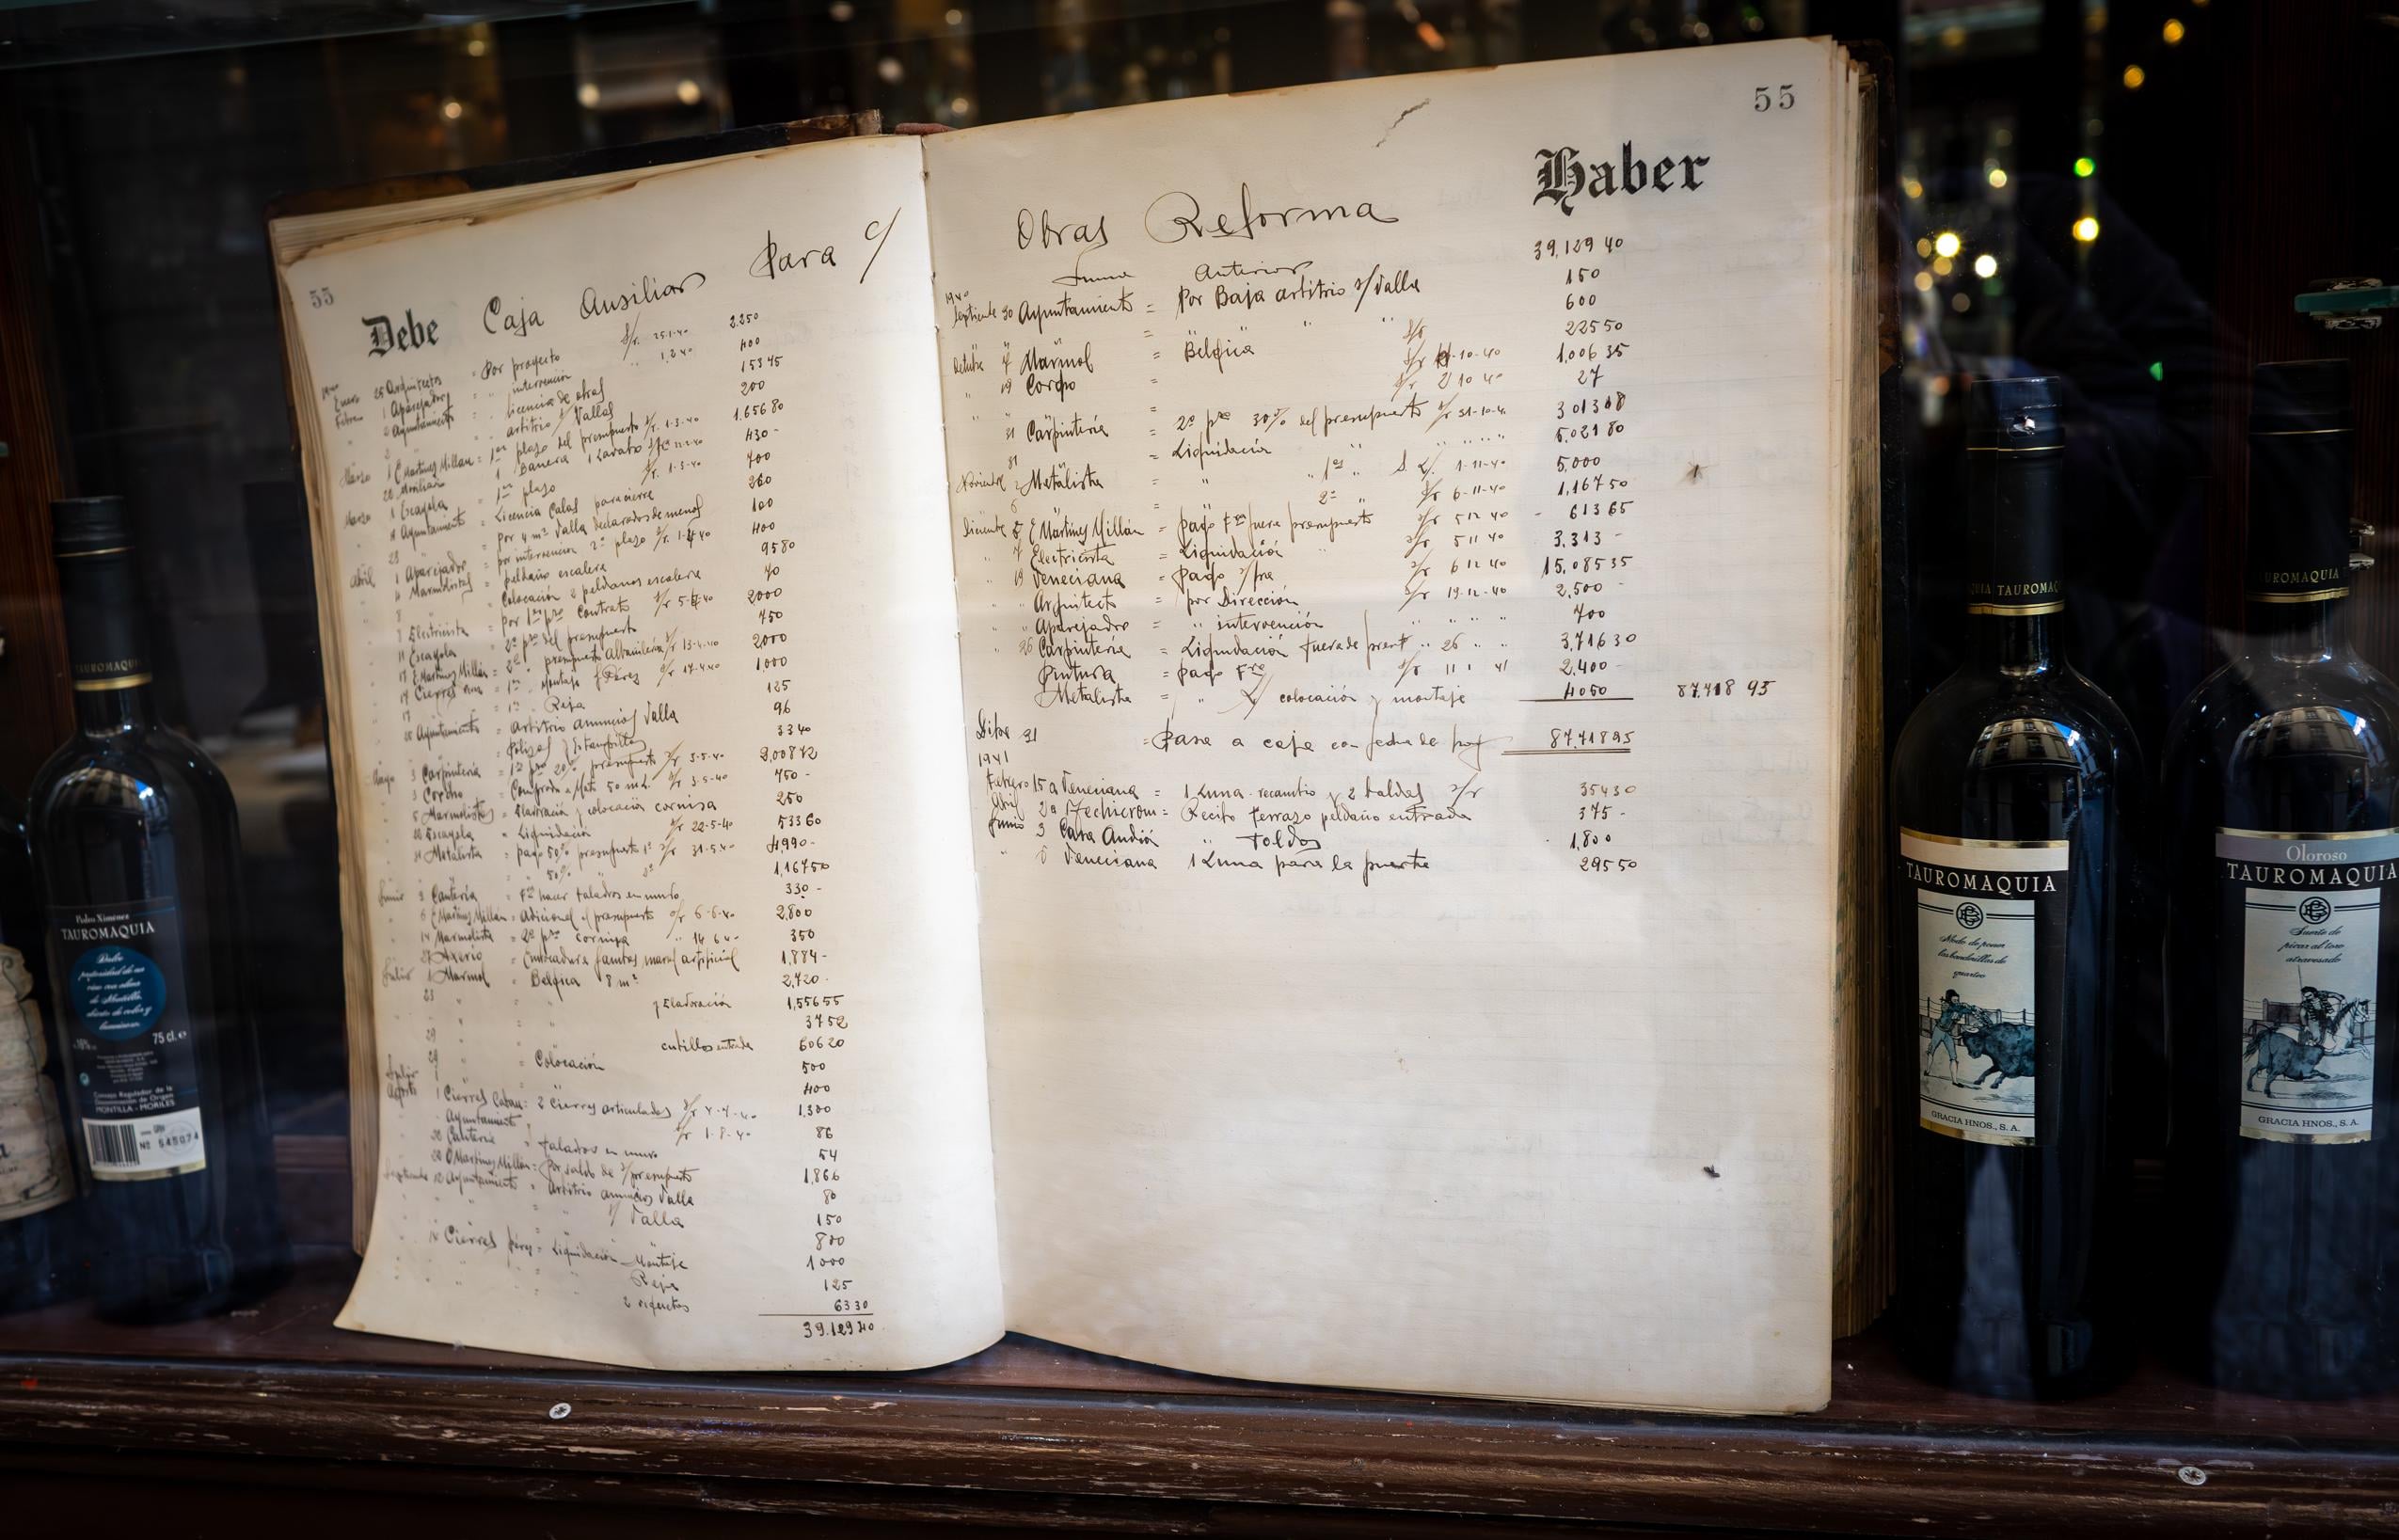 55
Debe Caja Ausiliar Para c/
1940
Enero 25 Arquitectos = Por proyecto s/r. 25-1-40 2.250
Febrero 1 Aparejador " intervención " 1.2.40 400
2 Ayuntamiento " licencia de obras 153 45
" arbitrio s/ Vallas 200
Marzo 1 E Martinez Millan = 1er plazo del presupuesto s/r. 1-3-40 1.656 80
1 Banera 1 Lavabo 430-
Marzo 1 Escayola = 1er plazo s/r. 1-3-40 700
Ayuntamiento = Licencia Calas para cierre 260
= por 4 m² Valla declarados de menos 100
Abril 1 Aparejador = por intervención 2º plazo s/r. 1-4-40 400
Marmolistas = peldaño escalera 95 80
" Colocación 2 peldanos escalera 70
Electricista = por 1er pzo Contrato s/r 5-4-40 2000
11 Escayola = 2º pzo del presupuesto 750
17 E Martinez Millán = 2º " presupuesto Albanileria s/r 13-4-40 2000
17 Cierres = 1er " Montaje s/r 17-4-40 1000
17 = 1er " Reja 125
Ayuntamiento = Arbitrio anuncios Valla 96
= Polizas y Estampillas 33 40
Mayo 3 Carpinteria = 1er pzo 20% presupuesto s/r 3-5-40 2,008 72
3 Corcho = Comprado a Mata 50 m2. s/r 3-5-40 750-
Marmolistas = Elavoración y colocación cornisa 250
Escayola = Liquidación s/r 22-5-40 533 60
31 Metalista = pago 50% presupuesto 1º s/r 31-5-40 4,990-
" 50% " 2º 1,167 50
Junio 3 Canteria = hacer taladros en muro 330-
6 E Martinez Millán = Adicional al presupuesto s/r 6-6-40 2,800
14 Marmolista = 2º pzo cornisa " 14 6 40 350
27 = marmol artificial 1,884-
Julio 1 Marmol = Belgica 8 m² 2,720-
23 " y Elavoración 1,556 55
37 52
29 " entrada 606 20
29 " = Colocación 500
Julio 400
Agosto 1 Cierres = 2 Cierres articulados s/r 1,300
Ayuntamiento s/r 1-8-40 86
20 Canteria = Taladros en muro 54
20 E Martinez Millán = Por saldo de s/ presupuesto 1,866
Septiembre 12 Ayuntamiento = Arbitrio anuncios Valla 80
" " s/ Valla 150
800
Cierres = Liquidación Montaje 1000
" " Reja 125
2 63 30
39.129 40
55
Haber
Obras Reforma
Suma Anterior 39,129 40
1940
Septiembre 30 Ayuntamiento = Por Baja arbitrio s/ Valla 150
" = " " " " 600
Octubre 7 Marmol = Belgica s/r 225 50
" 19 Corcho = s/r -10-40 1,006 35
= s/r 2 10 40 27
" 31 Carpinteria = 2º pzo 30% del presupuesto s/r 31-10-40 3 013 18
31 " = Liquidación " " " " 5,021 80
Noviembre 2 Metalista = " " 1er " 1-11-40 5,000
6 " = " 2º " s/r 6-11-40 1,167 50
Diciembre 5 E Martinez Millán = pago fra fuera presupuesto s/r 5 12 40 - 613 65
" 7 Electricista = Liquidación " s/r 5 11 40 3,313 -
" 19 Veneciana = pago s/ fra s/r 6 12 40 15,085 35
" " Arquitecto = por Dirección s/r 19-12-40 2,500 -
" " Aparejador = " intervención " " " " 700
" 26 Carpinteria = Liquidación fuera de prest " 26 " " 3,716 30
Pintura = pago Fra s/r 11 1 41 2,400 -
Metalista = " colocación y montaje 4050 87,418 95
Dibre 31 = Pasa a caja con fecha de hoy 87,418 95
1941
Febrero 15 a Veneciana = 1 Luna recambio y 2 baldas s/r 354 30
Abril 2 a Techicrom = Recibo terrazo peldaño entrada 375 -
Junio 3 Casa Audión " Toldos 1,800
" 5 Veneciana 1 Luna para la puerta 295 50
TAUROMAQUIA
Pedro Ximénez
TAUROMAQUIA
75 cl. e
MONTILLA - MORILES
Nº 545074
TAUROMAQUIA
TAUROMAQUIA
Modo de poner
las banderillas de
quartro
GRACIA HNOS., S. A.
TAUROMAQUIA
Oloroso
TAUROMAQUIA
Suerte de
picar al toro
atravesado
GRACIA HNOS., S. A.